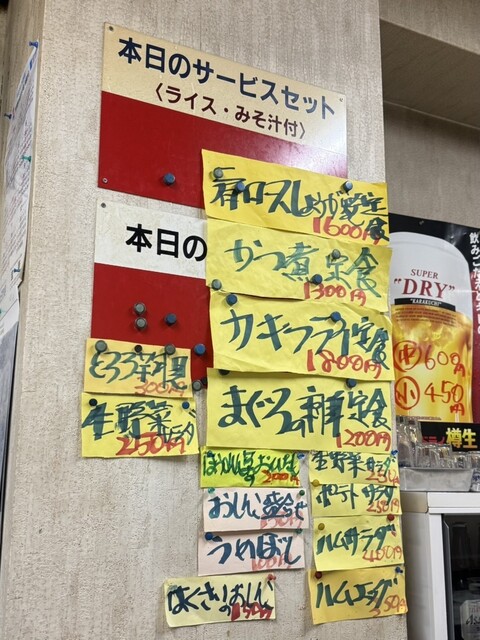 本日のサービスセット
〈ライス・みそ汁付〉
肩ロスしょうが焼定食
1600円
本日の
かつ煮定食
1300円
カキフライ定食
1800円
とろろ
300円
生野菜
250円
まぐろ 定食
1200円
生野菜サラダ
おしんこ盛合せ
ポテトサラダ
250円
うめぼし
100円
ハムサラダ
450円
はくさいおしんこ
ハムエッグ
350円
飲み
SUPER
"DRY"
"KARAKUCHI"
中 600円
小 450円
樽生